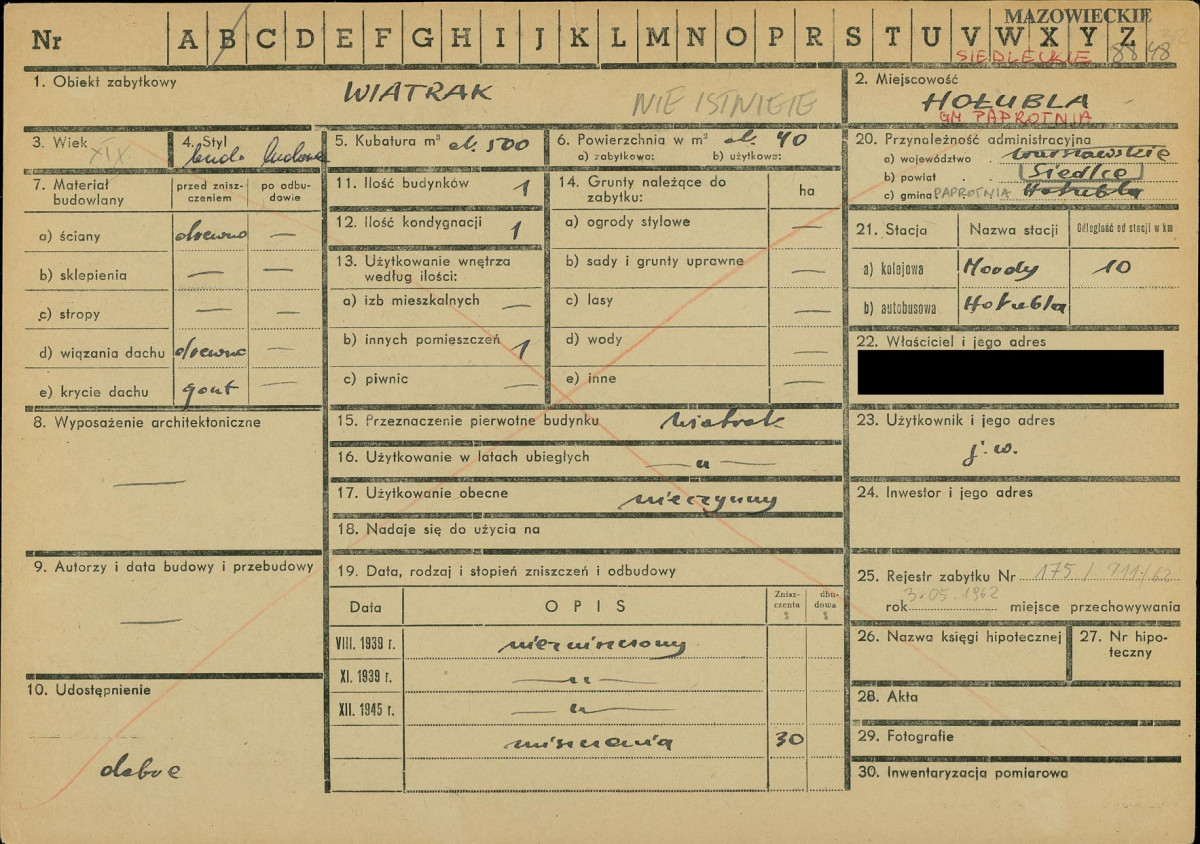 MAZOWIECKIE
Nr A B C D E F G H I J K L M N O P R S T U V W X Y Z
SIEDLECKIE 8848
1. Obiekt zabytkowy
WIATRAK
NIE ISTNIEJE
2. Miejscowość
HOŁUBLA
GM PAPROTNIA
3. Wiek XIX
4. Styl
bud. ludowe
5. Kubatura m³ ok. 500
6. Powierzchnia w m² ok. 40
a) zabytkowa: b) użytkowa:
20. Przynależność administracyjna
a) województwo warszawskie
b) powiat Siedlce
c) gmina PAPROTNIA Hołubla
7. Materiał budowlany
przed zniszczeniem
po odbudowie
a) ściany drewno —
b) sklepienia — —
c) stropy — —
d) wiązania dachu drewno —
e) krycie dachu gont —
11. Ilość budynków 1
12. Ilość kondygnacji 1
13. Użytkowanie wnętrza
według ilości:
a) izb mieszkalnych —
b) innych pomieszczeń 1
c) piwnic —
14. Grunty należące do
zabytku:
ha
a) ogrody stylowe —
b) sady i grunty uprawne —
c) lasy
d) wody —
e) inne —
21. Stacja Nazwa stacji Odległość od stacji w km
a) kolejowa Mordy 10
b) autobusowa Hołubla
22. Właściciel i jego adres
8. Wyposażenie architektoniczne
—
15. Przeznaczenie pierwotne budynku wiatrak
16. Użytkowanie w latach ubiegłych — „ —
17. Użytkowanie obecne nieczynny
18. Nadaje się do użycia na
23. Użytkownik i jego adres
j.w.
24. Inwestor i jego adres
9. Autorzy i data budowy i przebudowy
—
10. Udostępnienie
dobre
19. Data, rodzaj i stopień zniszczeń i odbudowy
Data OPIS Zniszczenia % dbudowa %
VIII. 1939 r. niezniszczony
XI. 1939 r. — „ —
XII. 1945 r. — „ —
zniszczenia 30
25. Rejestr zabytku Nr 175 / 911/62
rok 3.05.1962 miejsce przechowywania
26. Nazwa księgi hipotecznej
27. Nr hipoteczny
28. Akta
29. Fotografie
30. Inwentaryzacja pomiarowa